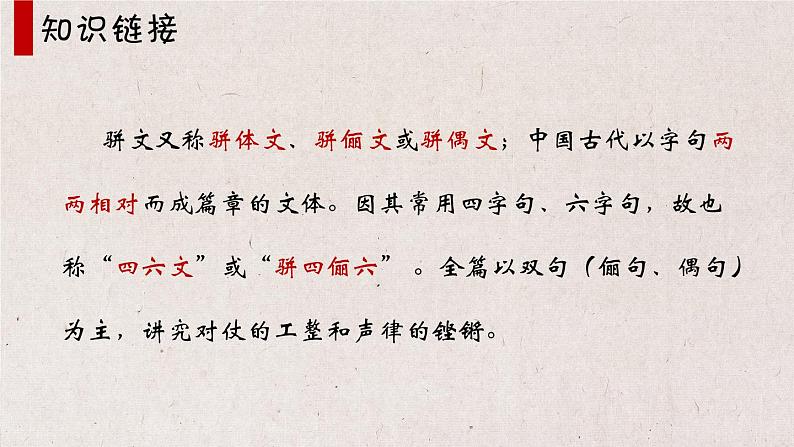 知识链接
骈文又称骈体文、骈俪文或骈偶文；中国古代以字句两
两相对而成篇章的文体。因其常用四字句、六字句，故也
称“四六文”或“骈四俪六” 。全篇以双句（俪句、偶句）
为主，讲究对仗的工整和声律的铿锵。